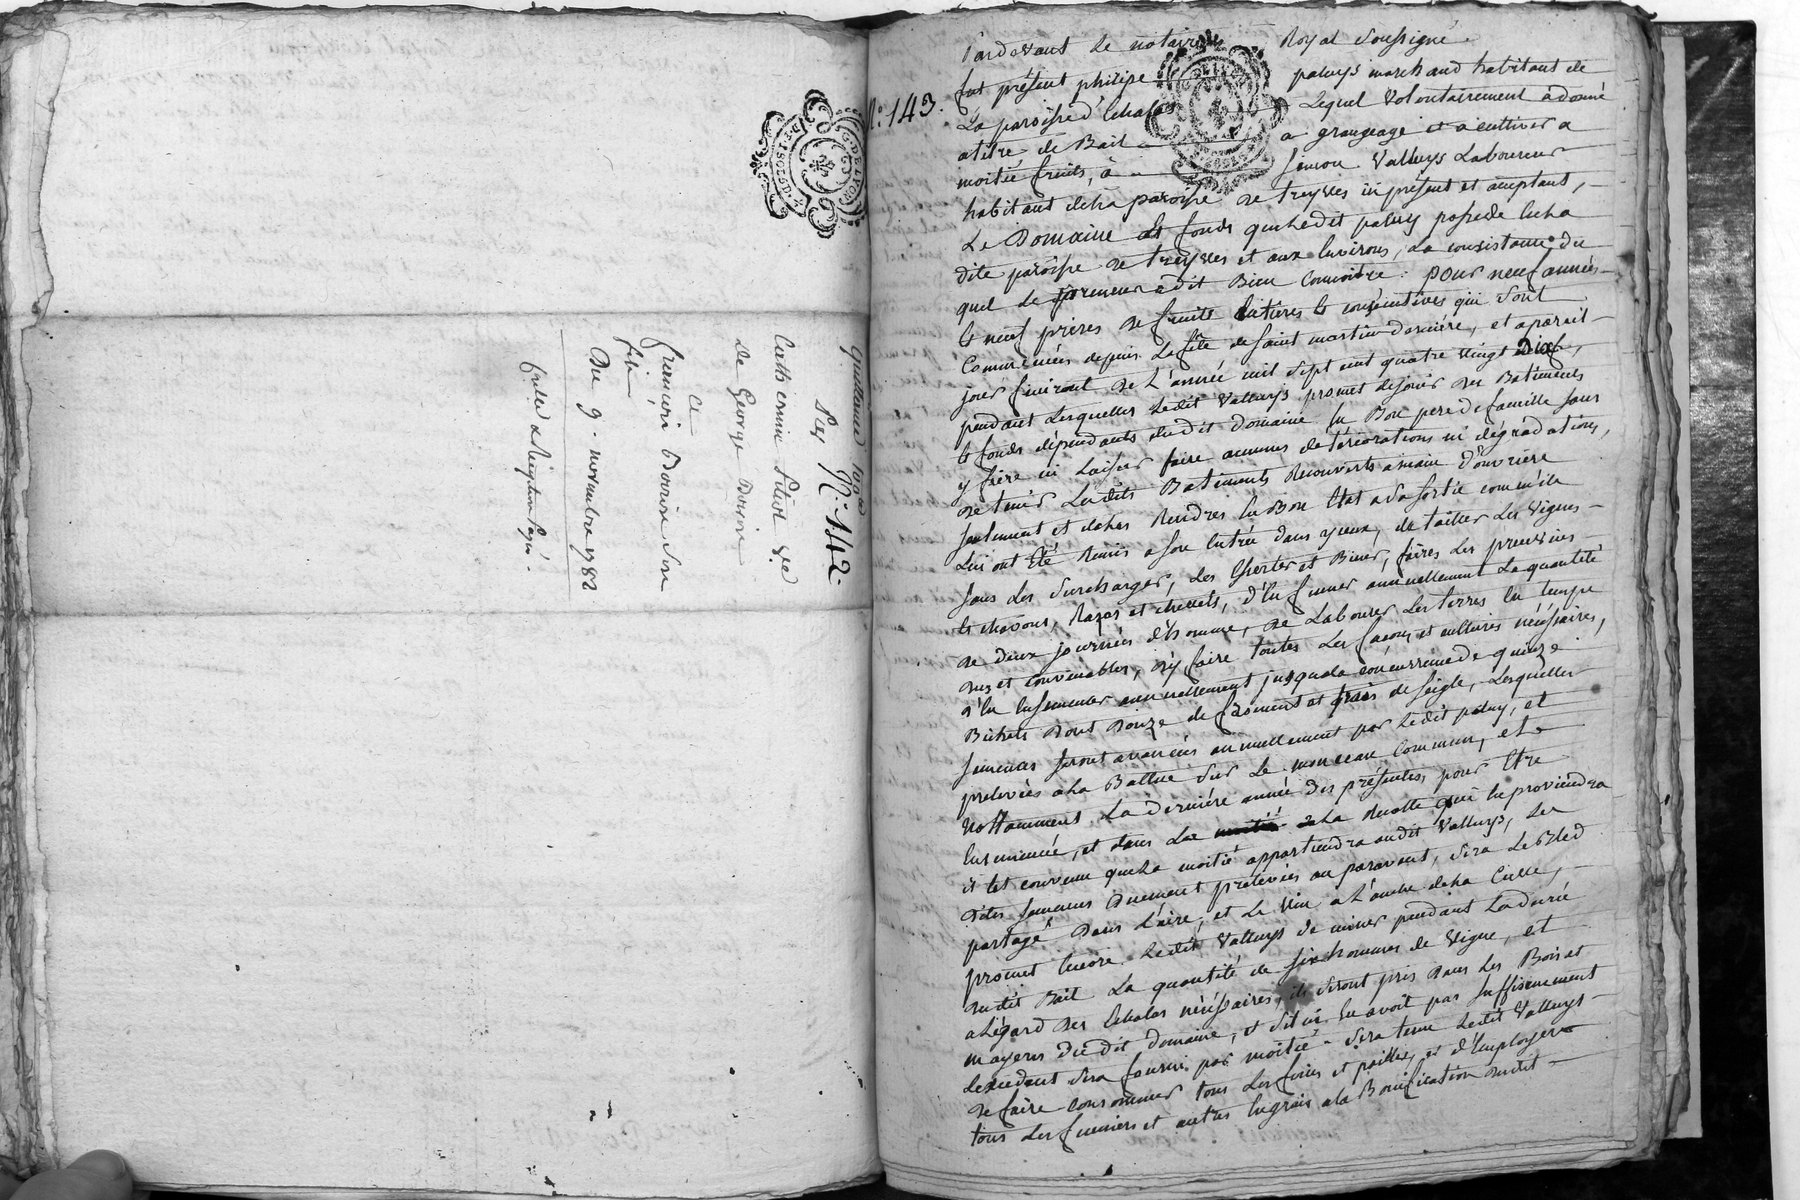 quittance
N.° 142.
Par
Catherinne
de George
a
françois
fils
Du 9. novembre 1782
N.° 143.
Pardevant le notaire Royal soussigné
fut présent philipe paluys marchand habitant de
La paroisse d'Echalas Lequel volontairement a donné
a titre de Bail a grangeage et a cultiver a
moitié fruits, à Simon Valluys Laboureur
habitant de la paroisse de treyves icy présent et acceptant,
Le Domaine et fonds que ledit paluy possede en la
dite paroisse de treyves et aux Environs, La consistance du
quel le preneur a dit Bien Connoitre. pour neuf années
Et neuf prises de fruits Entieres et consécutives qui sont
Commencées depuis La fête de saint martin derniere, et a pareil
jour finiront de L'année mil sept cent quatre vingt Dix,
pendant Lesquelles Ledit Valluys promet de jouir des Batiments
Et fonds dépendants dudit Domaine En Bon pere de famille sans
y faire ni Laisser faire aucunes détériorations ni dégradations,
de tenir Lesdits Batiments Recouverts a main d'ouvriere
seulement et de les Rendres En Bon Etat a sa sortie comme ils
Lui ont Eté Remis a son Entrée dans yceux, de tailler Les Vignes
sans Les surcharger, Les et Biner, faires Les
et , Razes et , d'En fumer annuellement La quantité
de deux journées d'homme, de Labourer Les terres En temps
dus et convenables, d'y faire toutes Les facons et cultures nécéssaires,
d'En Ensemencer annuellement jusqu'a la concurrence de quinze
Bichets Dont Douze de froment et trois de seigle, Lesquelles
semences seront avancées annuellement par Ledit paluy, et
prelevées a La Battue sur Le monceau Commun, et
nottamment La derniere année des présentes, pour Etre
Ensemencée, et dans La Recolte qui En proviendra
il Est convenu que La moitié appartiendra audit Valluys, Les
dites semences duement prélevées au paravant, sera Le Bled
partagé Dans L'aire, et Le Vin a L'anche de La Cuve,
promet Encore Ledit Valluys de miner pendant La durée
dudit Bail La quantité de six hommes de Vigne, et
a Légard des Echalas nécéssaires, ils seront pris Dans Les Bois et
du dit Domaine, et s'il n'y En avoit pas suffisemment
Lexcedant sera fourni par moitié. sera tenu Ledit Valluys
de faire consommer tous Les foins et pailles, et d'Employer
tous Les fumiers et autres Engrais a la Bonification dudit